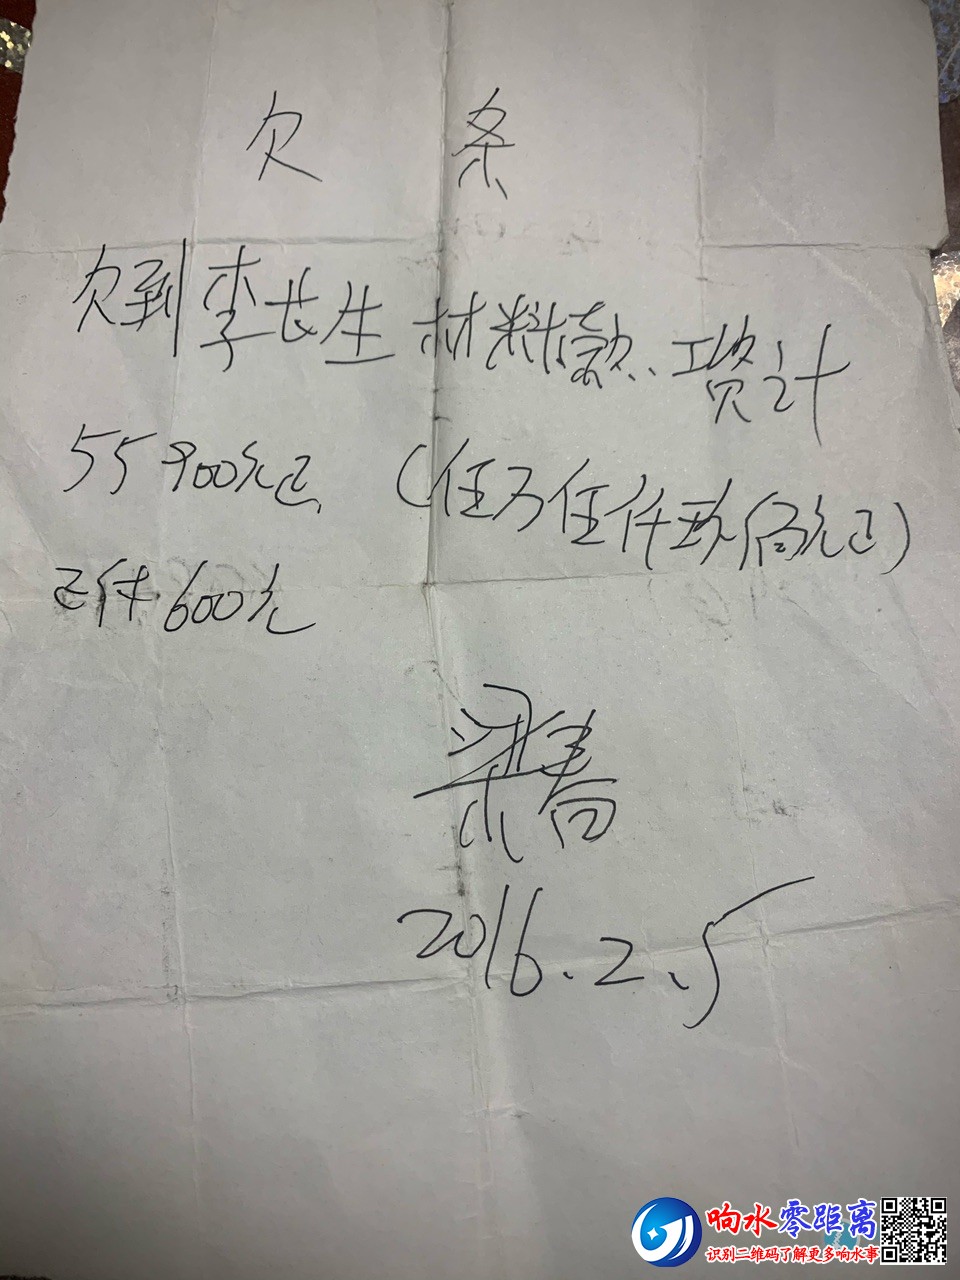 欠条
欠到李长生材料款、工资计
55900元正（伍万伍仟玖佰元正）
已付600元
梁春
2016.2.5
响水零距离
识别二维码了解更多响水事